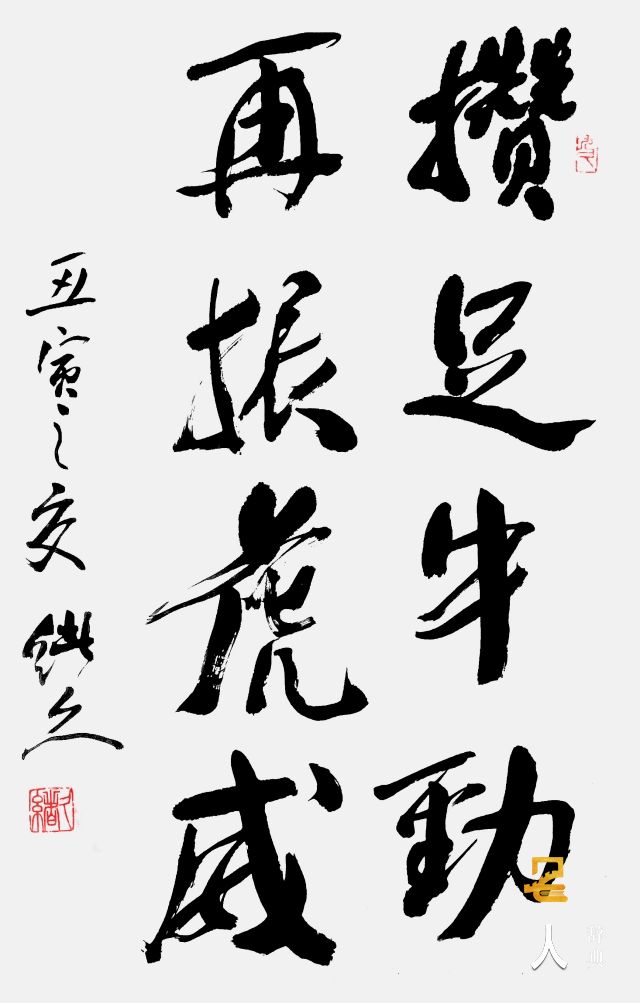 攒足牛劲
再振虎威
丑寅之交 继久
人